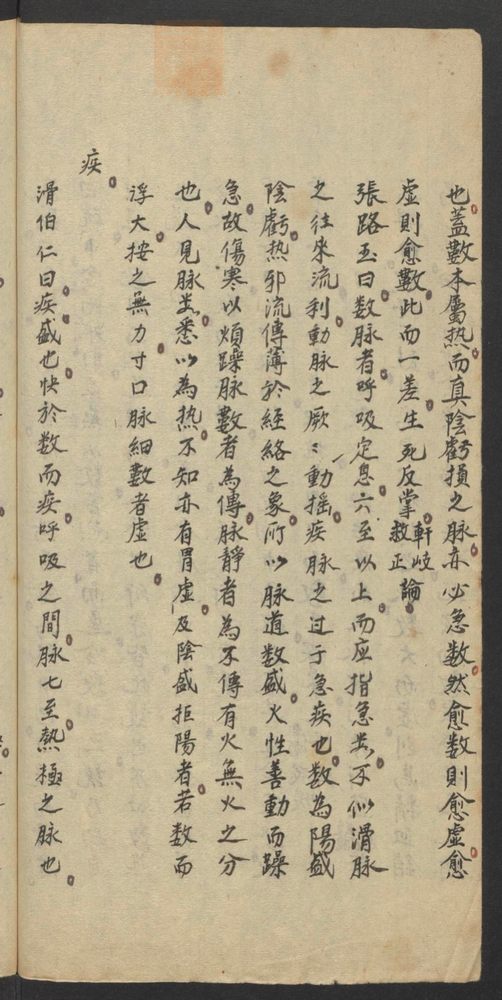 也蓋數本屬热而真陰虧損之脉亦必急数然愈数則愈虛愈
虛則愈數此而一差生死反掌軒岐救正論
張路玉曰数脉者呼吸定息六至以上而应指急数不似滑脉
之往来流利動脉之厥〻動揺疾脉之过于急疾也数為陽盛
陰虧热邪流傳薄於経絡之象所以脉道数盛火性善動而躁
急故傷寒以煩躁脉數者為傳脉靜者為不傳有火無火之分
也人見脉数悉以為热不知亦有胃虛及陰盛拒陽者若数而
浮大按之無力寸口脉細數者虛也
疾
滑伯仁曰疾盛也快於数而疾呼吸之間脉七至熱極之脉也